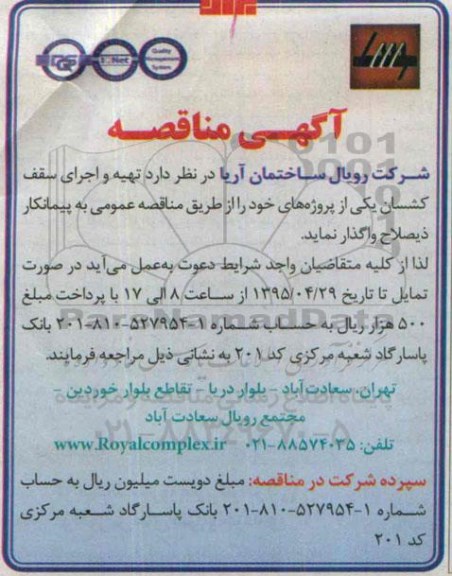 Quality
Management
System
IQNet
آگهی مناقصه
شرکت رویال ساختمان آریا در نظر دارد تهیه و اجرای سقف
کشسان یکی از پروژه‌های خود را از طریق مناقصه عمومی به پیمانکار
ذیصلاح واگذار نماید.
لذا از کلیه متقاضیان واجد شرایط دعوت به‌عمل می‌آید در صورت
تمایل تا تاریخ ۱۳۹۵/۰۴/۲۹ از ساعت ۸ الی ۱۷ با پرداخت مبلغ
۵۰۰ هزار ریال به حساب شماره ۱-۵۲۷۹۵۴-۸۱۰-۲۰۱ بانک
پاسارگاد شعبه مرکزی کد ۲۰۱ به نشانی ذیل مراجعه فرمایند.
تهران، سعادت آباد - بلوار دریا - تقاطع بلوار خوردین -
مجتمع رویال سعادت آباد
تلفن: ۸۸۵۷۴۰۳۵-۰۲۱ www.Royalcomplex.ir
سپرده شرکت در مناقصه: مبلغ دویست میلیون ریال به حساب
شماره ۱-۵۲۷۹۵۴-۸۱۰-۲۰۱ بانک پاسارگاد شعبه مرکزی
کد ۲۰۱
ParsNamadData